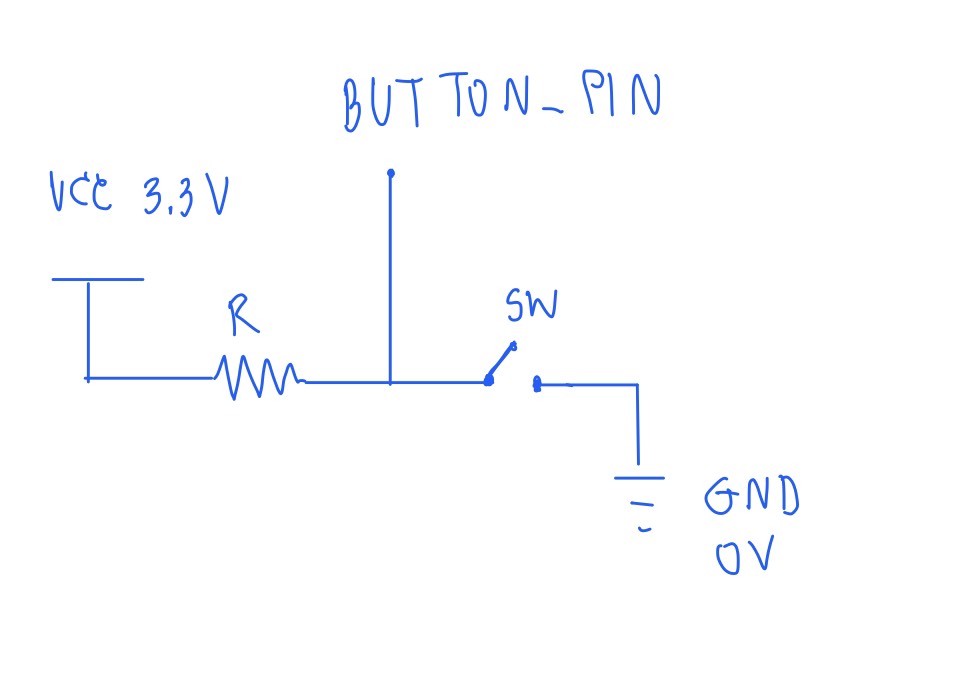 BUTTON_PIN
VCC 3.3V
R
SW
GND
0V